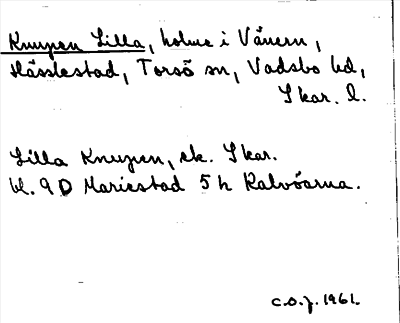 Knupen Lilla, holme i Vänern,
Hässlestad, Torsö sn, Vadsbo hd,
Skar. l.
Lilla Knupen, ek. Skar.
bl. 9 D Mariestad 5 h Kalvöarna.
C.O.J. 1961.